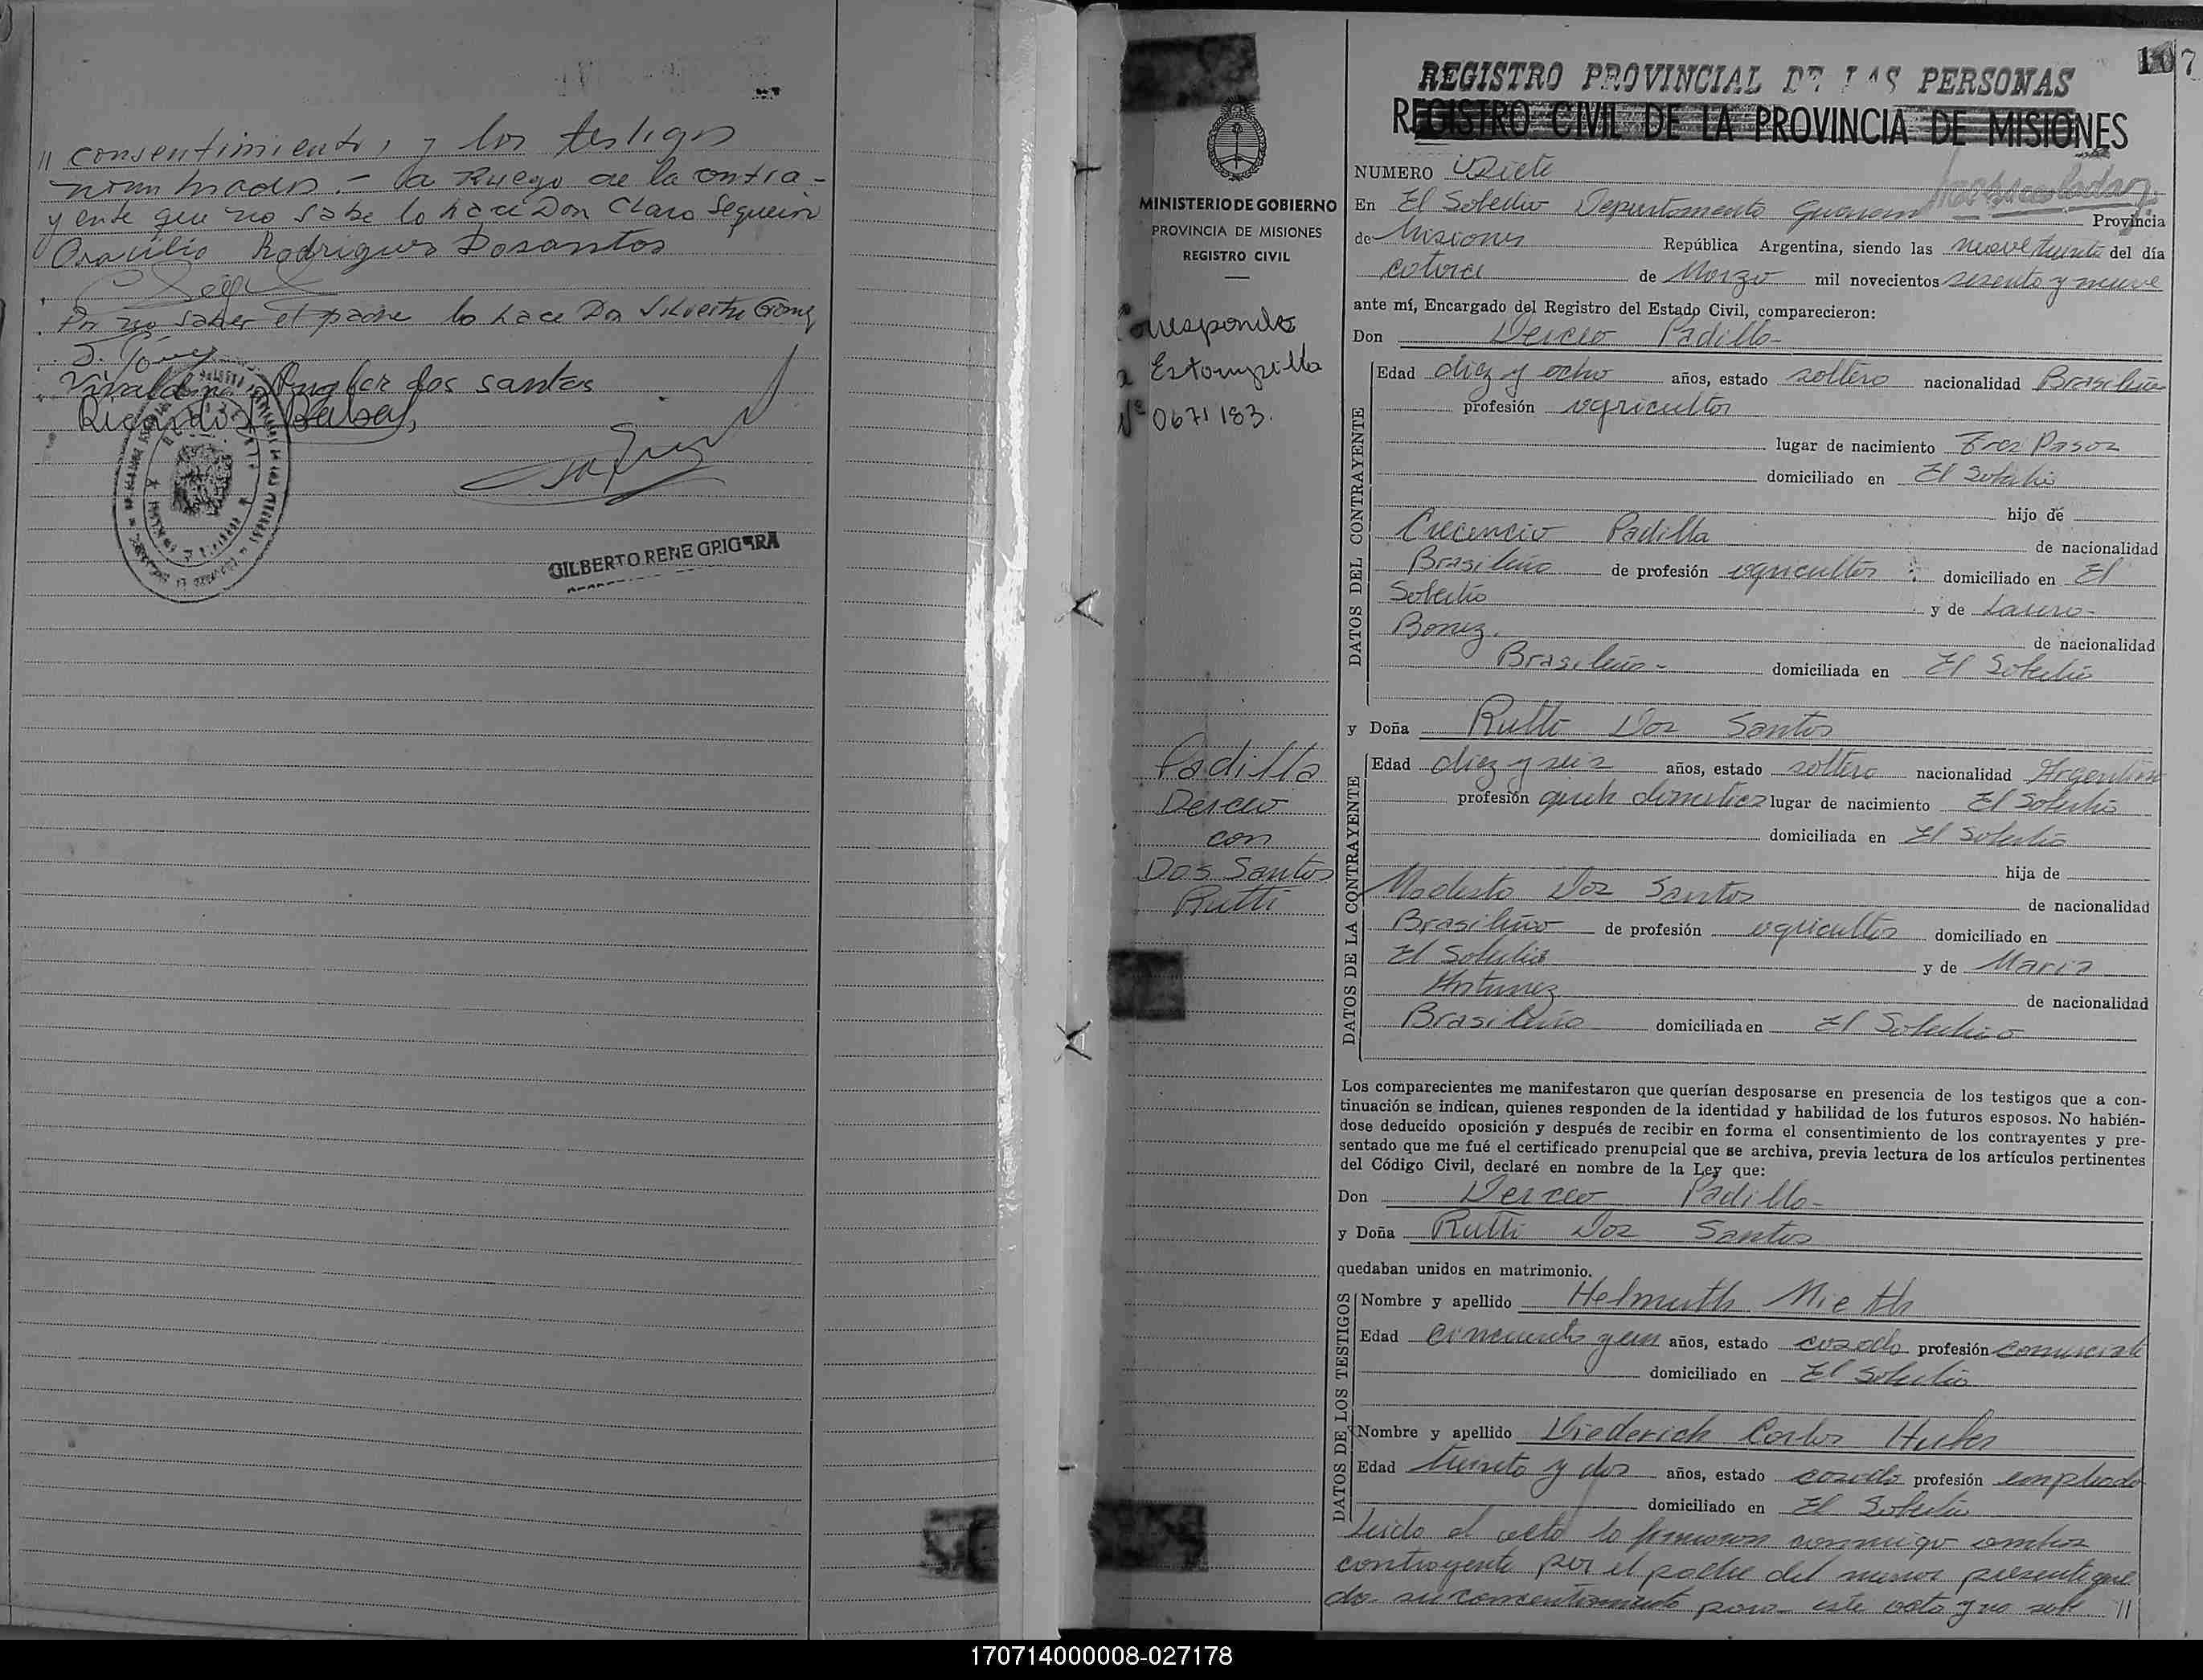 // consentimiento, y los testigos
nombrados.- a Ruego de la contra-
yente que no sabe lo hace Don Claro Sequeira
Rodrigues Dosantos
Por no saber el padre lo hace Don Silvestre Gomez
S. Gómez
dos santos
Ricardo
GILBERTO RENE GRIGERA
107
REGISTRO PROVINCIAL DE LAS PERSONAS
REGISTRO CIVIL DE LA PROVINCIA DE MISIONES
MINISTERIO DE GOBIERNO
PROVINCIA DE MISIONES
REGISTRO CIVIL
Corresponde
a Estampilla
Nº 0671183.
Padilla
Derceo
con
Dos Santos
Rutti
NUMERO Siete
En El Soberbio Departamento Guarani Provincia
de Misiones República Argentina, siendo las nueve treinta del día
catorce de Marzo mil novecientos sesenta y nueve
ante mí, Encargado del Registro del Estado Civil, comparecieron:
Don Derceo Padilla-
DATOS DEL CONTRAYENTE
Edad diez y ocho años, estado soltero nacionalidad Brasileña
profesión agricultor
lugar de nacimiento Tres Pasos
domiciliado en El Soberbio
hijo de
Crecencio Padilla de nacionalidad
Brasileña de profesión agricultor domiciliado en El
Soberbio y de Laura
de nacionalidad
Brasileña- domiciliada en El Soberbio
y Doña Rutti Dos Santos
DATOS DE LA CONTRAYENTE
Edad diez y seis años, estado soltera nacionalidad Argentina
profesión queh domesticos lugar de nacimiento El Soberbio
domiciliada en El Soberbio
hija de
Modesto Dos Santos de nacionalidad
Brasileña de profesión agricultor domiciliado en
El Soberbio y de Maria
Antunez de nacionalidad
Brasileña domiciliada en El Soberbio
Los comparecientes me manifestaron que querían desposarse en presencia de los testigos que a con-
tinuación se indican, quienes responden de la identidad y habilidad de los futuros esposos. No habién-
dose deducido oposición y después de recibir en forma el consentimiento de los contrayentes y pre-
sentado que me fué el certificado prenupcial que se archiva, previa lectura de los artículos pertinentes
del Código Civil, declaré en nombre de la Ley que:
Don Derceo Padilla-
y Doña Rutti Dos Santos
quedaban unidos en matrimonio.
DATOS DE LOS TESTIGOS
Nombre y apellido Helmuth Mieth
Edad cincuenta y un años, estado casado profesión comerciante
domiciliado en El Soberbio
Nombre y apellido Diederich Carlos Huber
Edad treinta y dos años, estado casado profesión empleado
domiciliado en El Soberbio
Leida el acta la firmaron conmigo ambos
contrayente por el padre del menor presente que
da su consentimiento para este acto y no sabe //
170714000008-027178